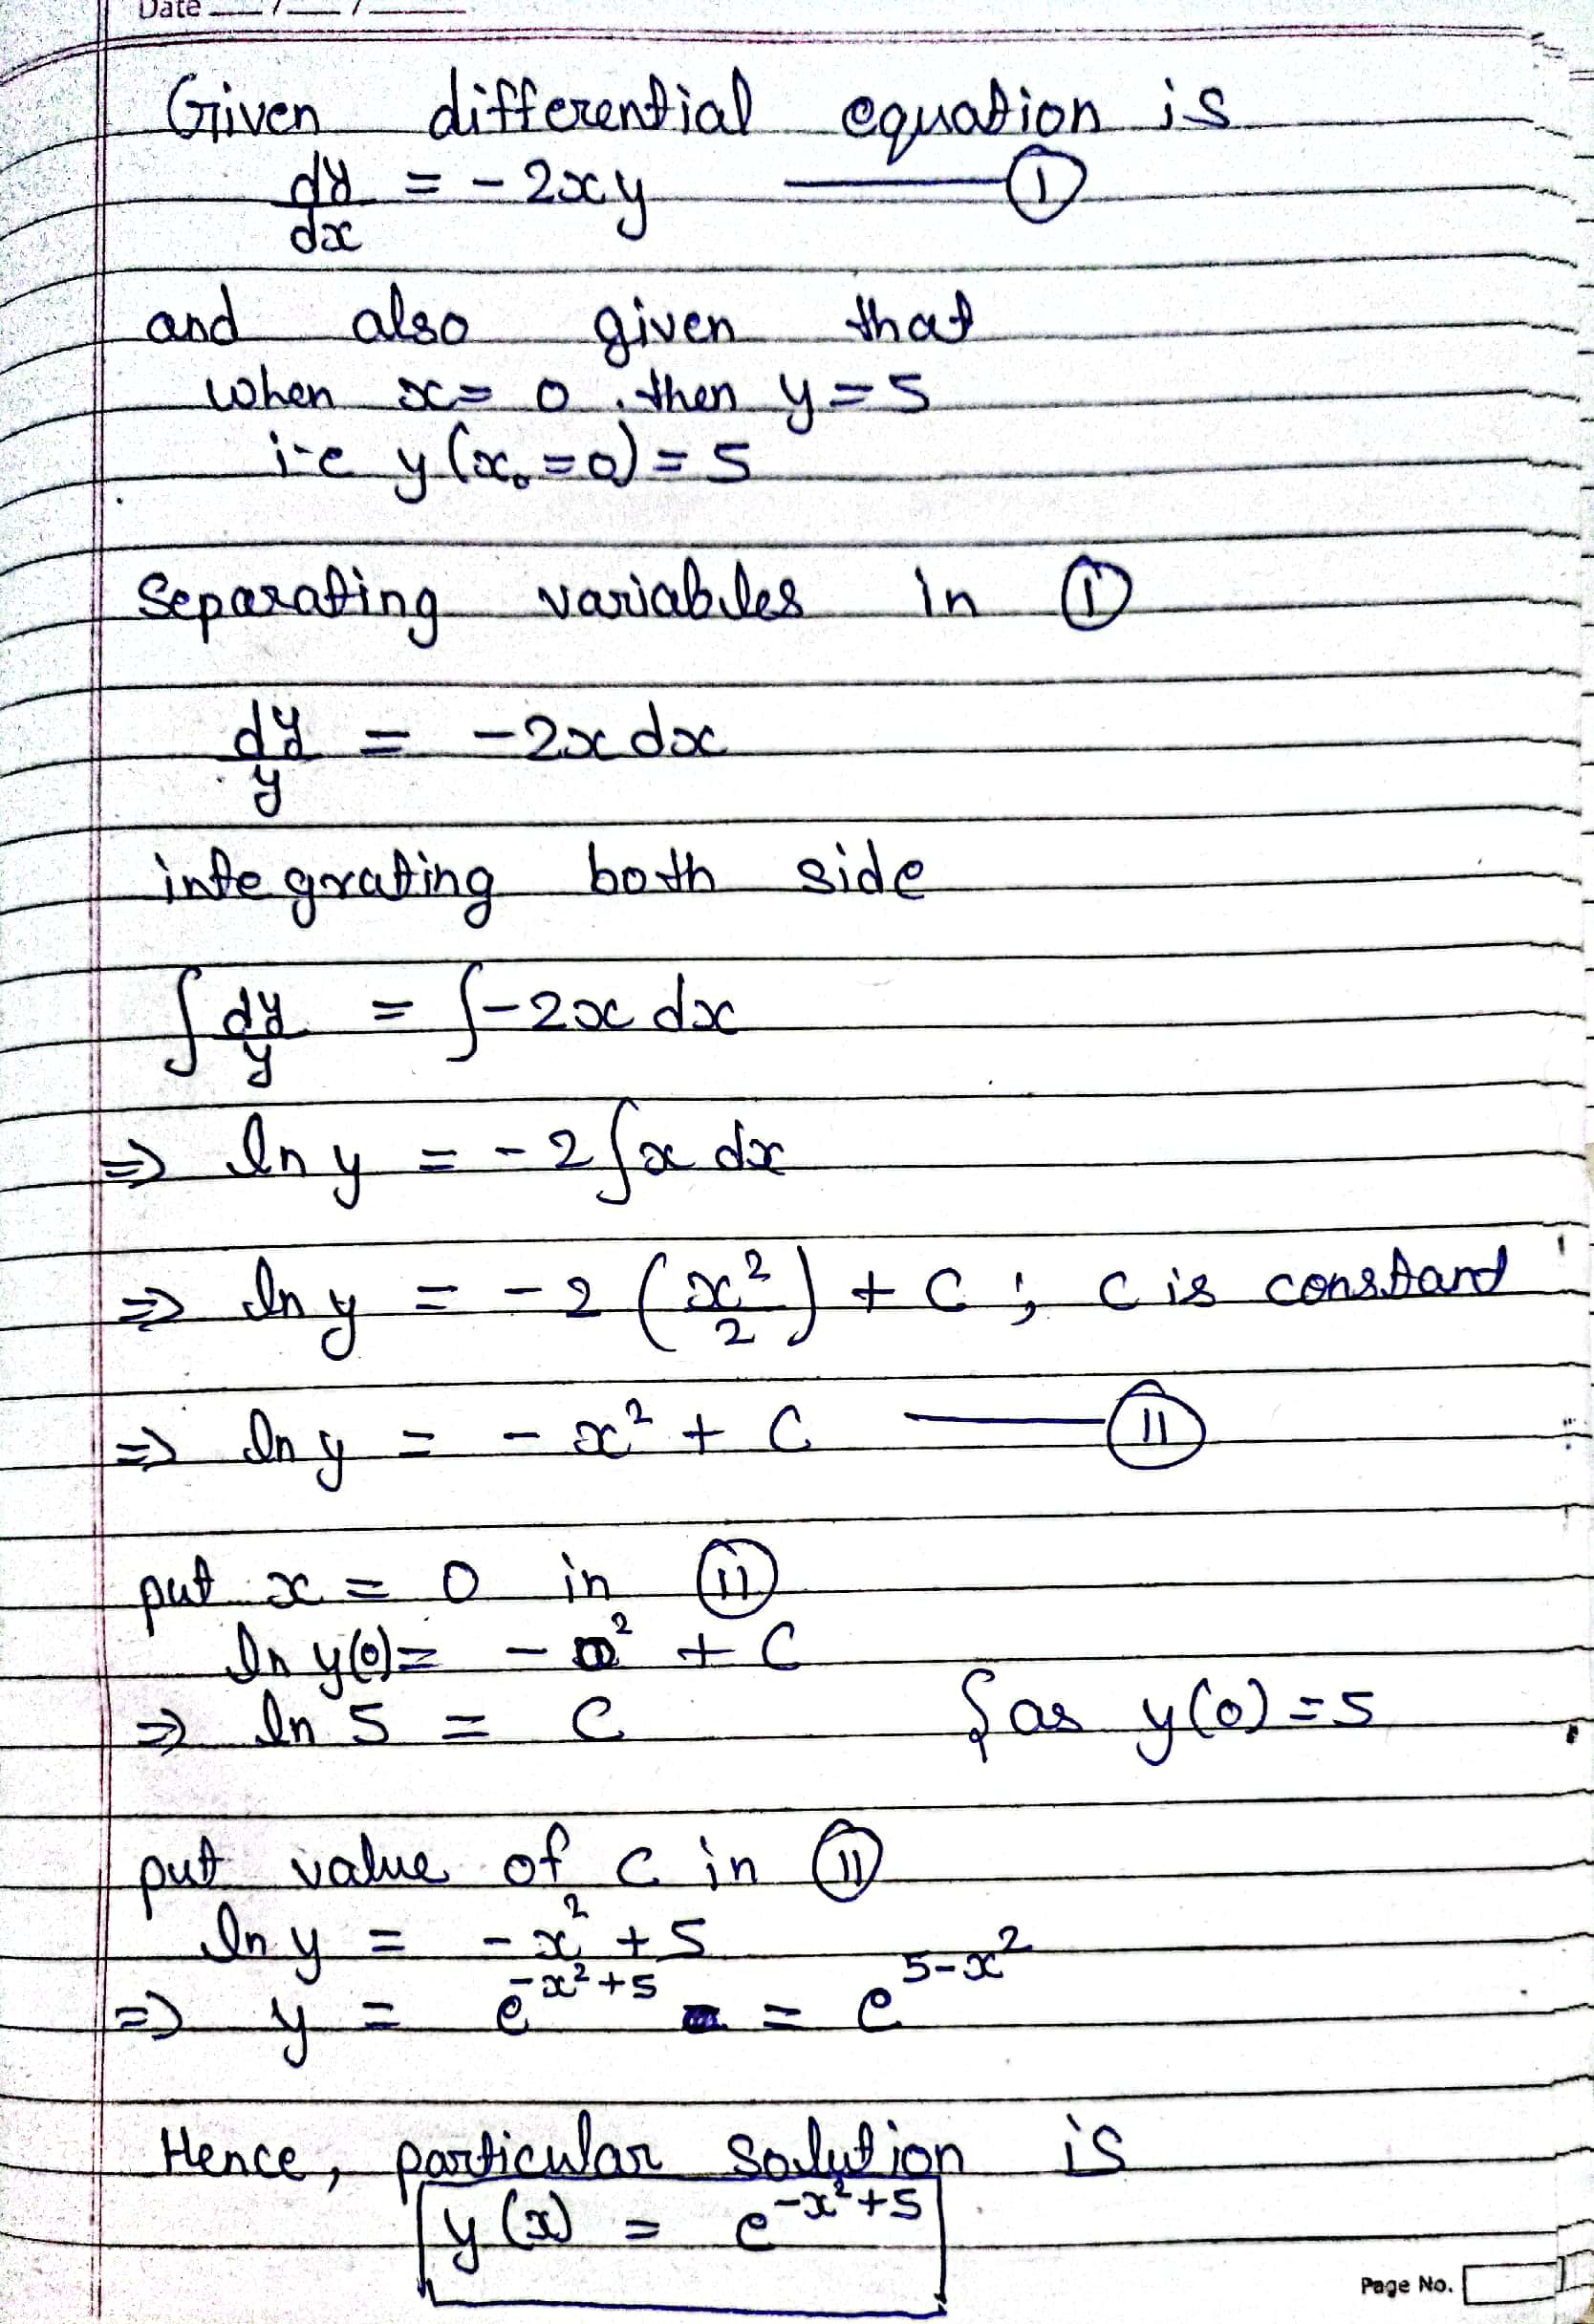 Date ___/___/___
Given differential equation is
dy/dx = - 2xy ——— (I)
and also given that
when x = 0, then y = 5
i-e y(x₀ = 0) = 5
Separating variables in (I)
dy/y = - 2x dx
integrating both side
∫ dy/y = ∫ - 2x dx
⇒ ln y = - 2 ∫ x dx
⇒ ln y = - 2 (x²/2) + C ; C is constant
⇒ ln y = - x² + C ——— (II)
put x = 0 in (II)
ln y(0) = - 0² + C
⇒ ln 5 = C { as y(0) = 5
put value of C in (II)
ln y = - x² + 5
⇒ y = e^(-x²+5) = e^(5-x²)
Hence, particular solution is
y(x) = e^(-x²+5)
Page No.